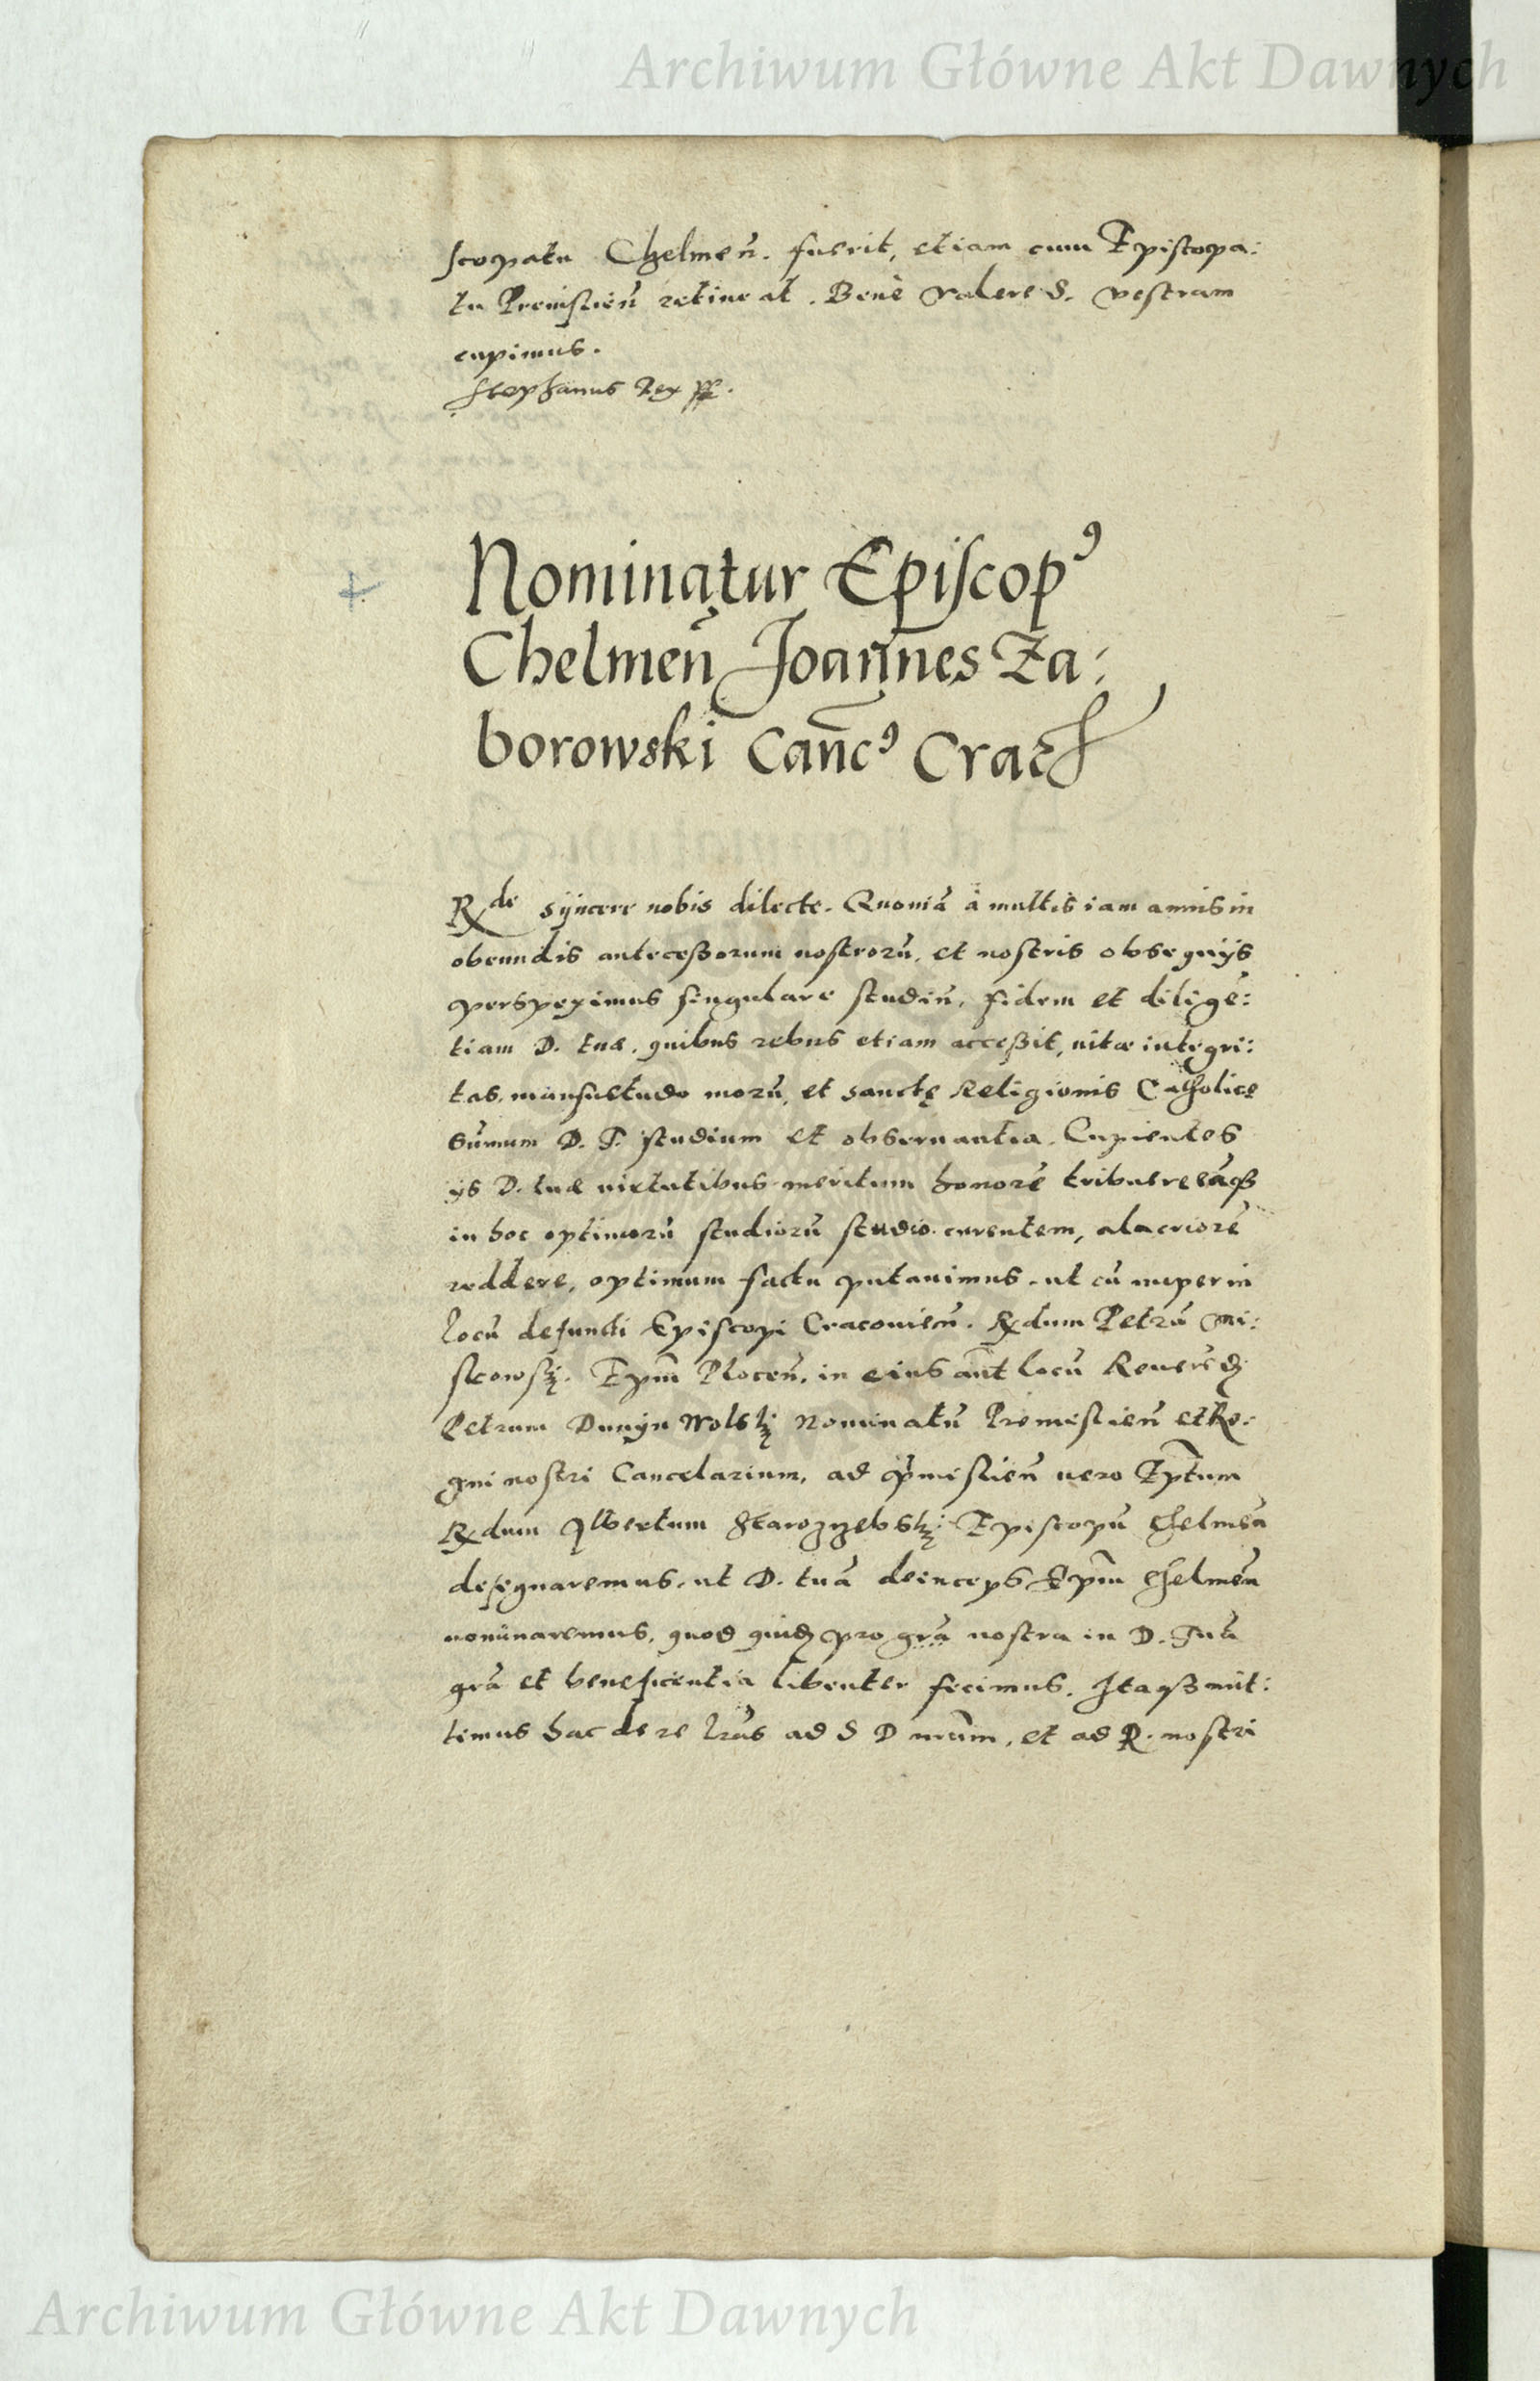 Archiwum Główne Akt Dawnych
scopatu Chelmeñ. fuerit, etiam cum Episcopa:
tu Premislieñ retineat. Benè Valere S. vestram
cupimus.
Stephanus Rex
Nominatur Episcopꝰ
Chelmeñ Joannes Za:
borowski Cancꝰ
Rde syncere nobis dilecte. Quoniã à multis iam annis in
obeundis anteceßorum nostrorũ, et nostris obsequijs
perspeximus singulare studiũ, fidem et diligẽ:
tiam D. tuæ. quibus rebus etiam acceßit, uitæ integri:
tas, mansuetudo morũ, et sanctę Religionis Catholicę
sũmum D. T. studium et obseruantia. Cupientes
ijs D. tuæ uirtutibus meritum honorẽ tribuere eãqꝫ
in hoc optimorũ studiorũ studio currentem, alacriorẽ
reddere, optimum factu putauimus. ut cũ nuper in
locũ defuncti Episcopi Cracouieñ. Rdum Petrũ Mi:
scowskj. Epm̃ Ploceñ. in eius aut̃ locũ
Petrum Dunyn Wolskj Nominatũ Premislieñ et Re:
gni nostri Cancelarium, ad p̃mislieñ uero Ep̃tum
Rdum Albertum Starozrzebskj Episcopũ Chelmẽn
desegnaremus. ut D. tuã deinceps Epm̃ Chelmẽn
nominaremus, quod quidẽ pro gr̃a nostra in D. Tuã
gr̃a et beneficentia libenter fecimus. Itaqꝫ mit:
timus hac de re lr̃as ad S D nr̃um, et ad R. nostri
Archiwum Główne Akt Dawnych